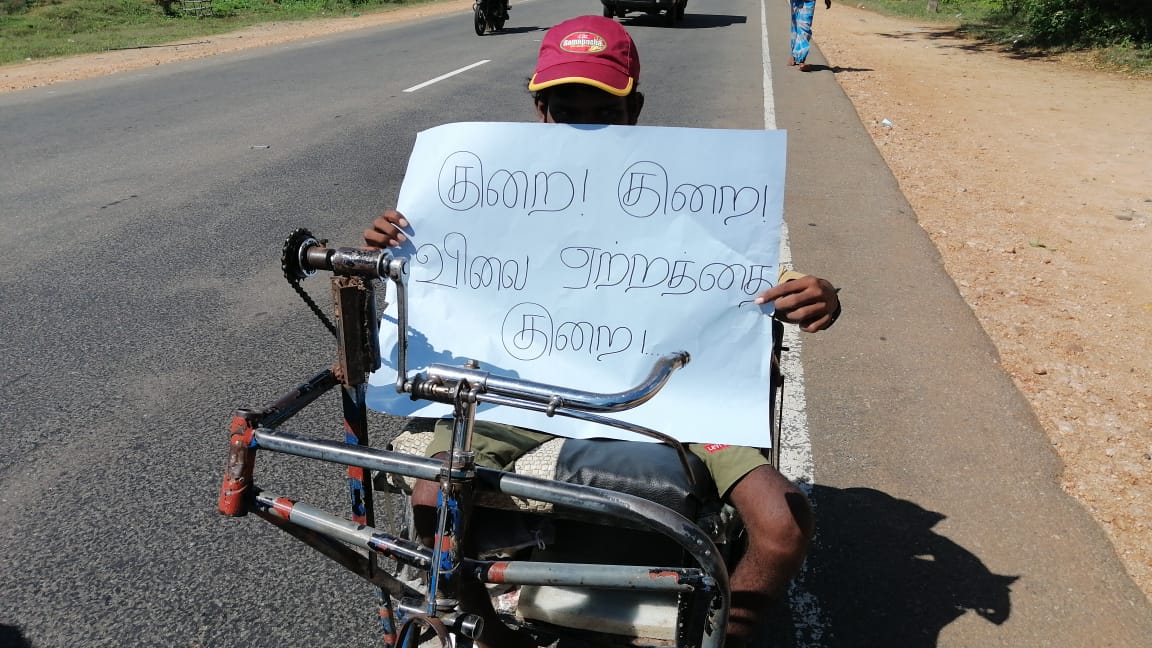 Samaposha
குறை! குறை!
விலை ஏற்றத்தை
குறை!....